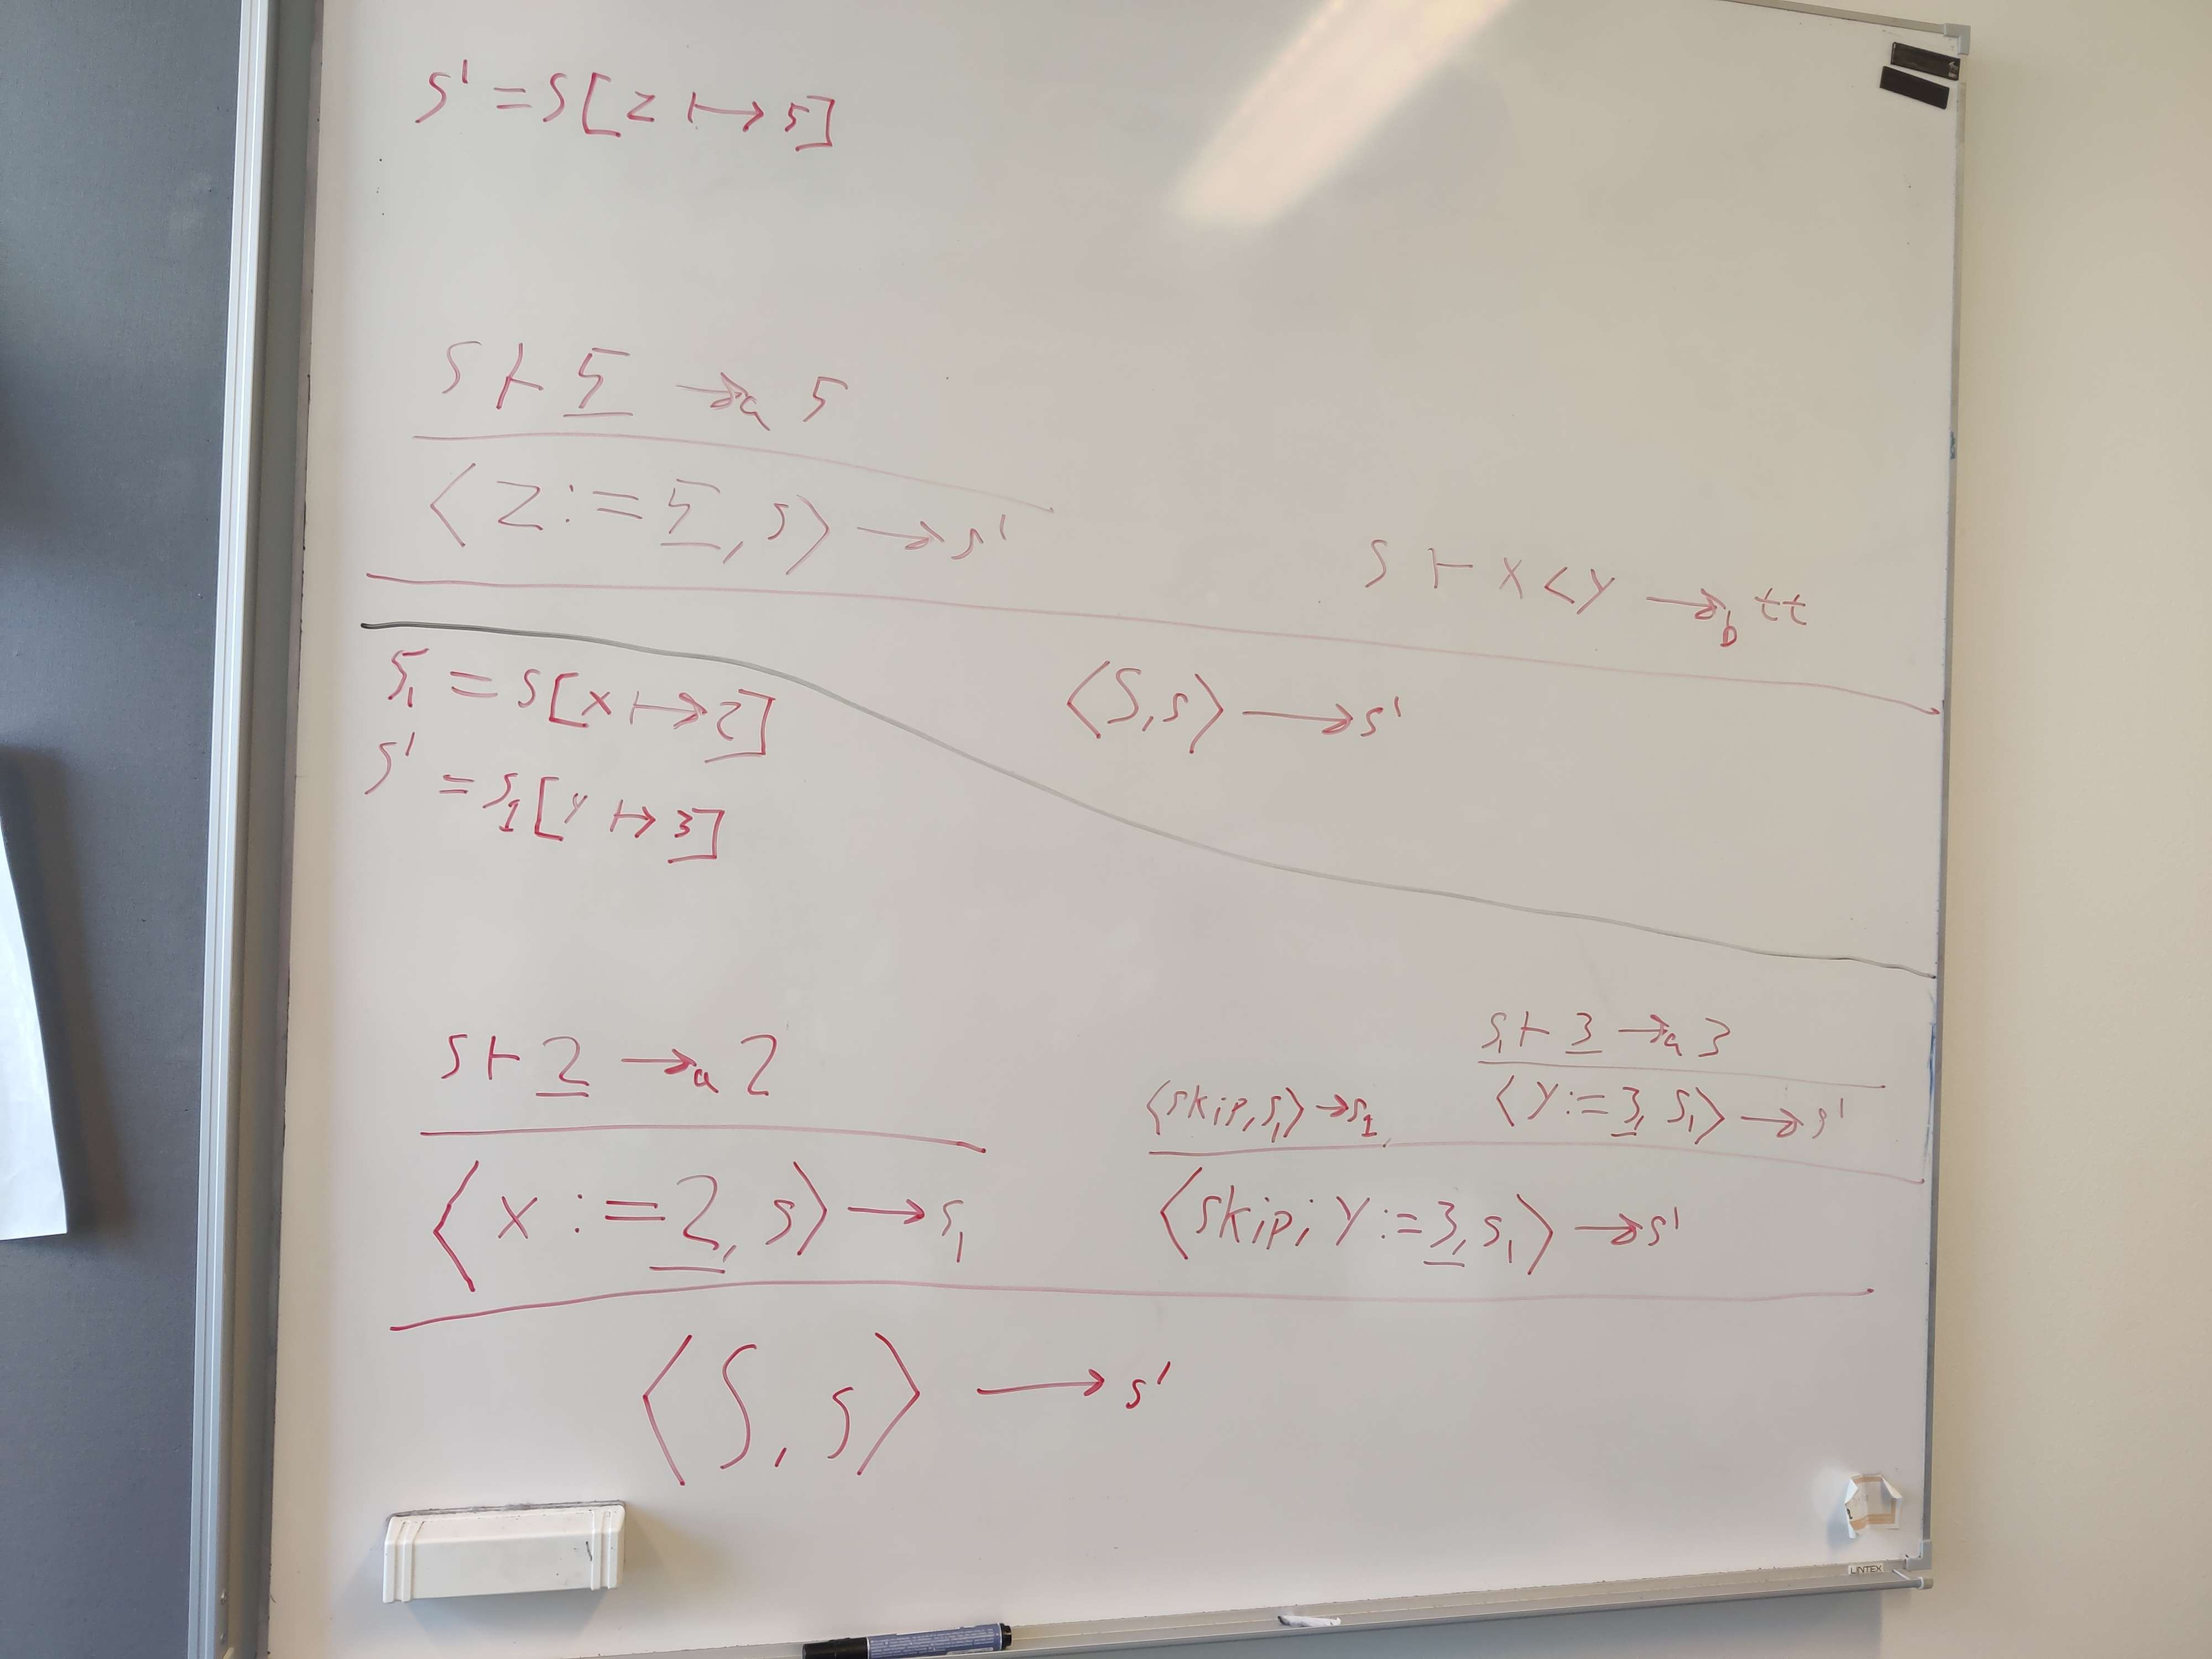 s' = s[z ↦ 5]
s ⊢ 5 →a 5
⟨z := 5, s⟩ → s'
s ⊢ x < y →b tt
⟨S, s⟩ → s'
s₁ = s[x ↦ 2]
s' = s₁[y ↦ 3]
s ⊢ 2 →a 2
⟨x := 2, s⟩ → s₁
s₁ ⊢ 3 →a 3
⟨skip, s₁⟩ → s₁
⟨y := 3, s₁⟩ → s'
⟨skip; y := 3, s₁⟩ → s'
⟨S, s⟩ → s'
LINTEX